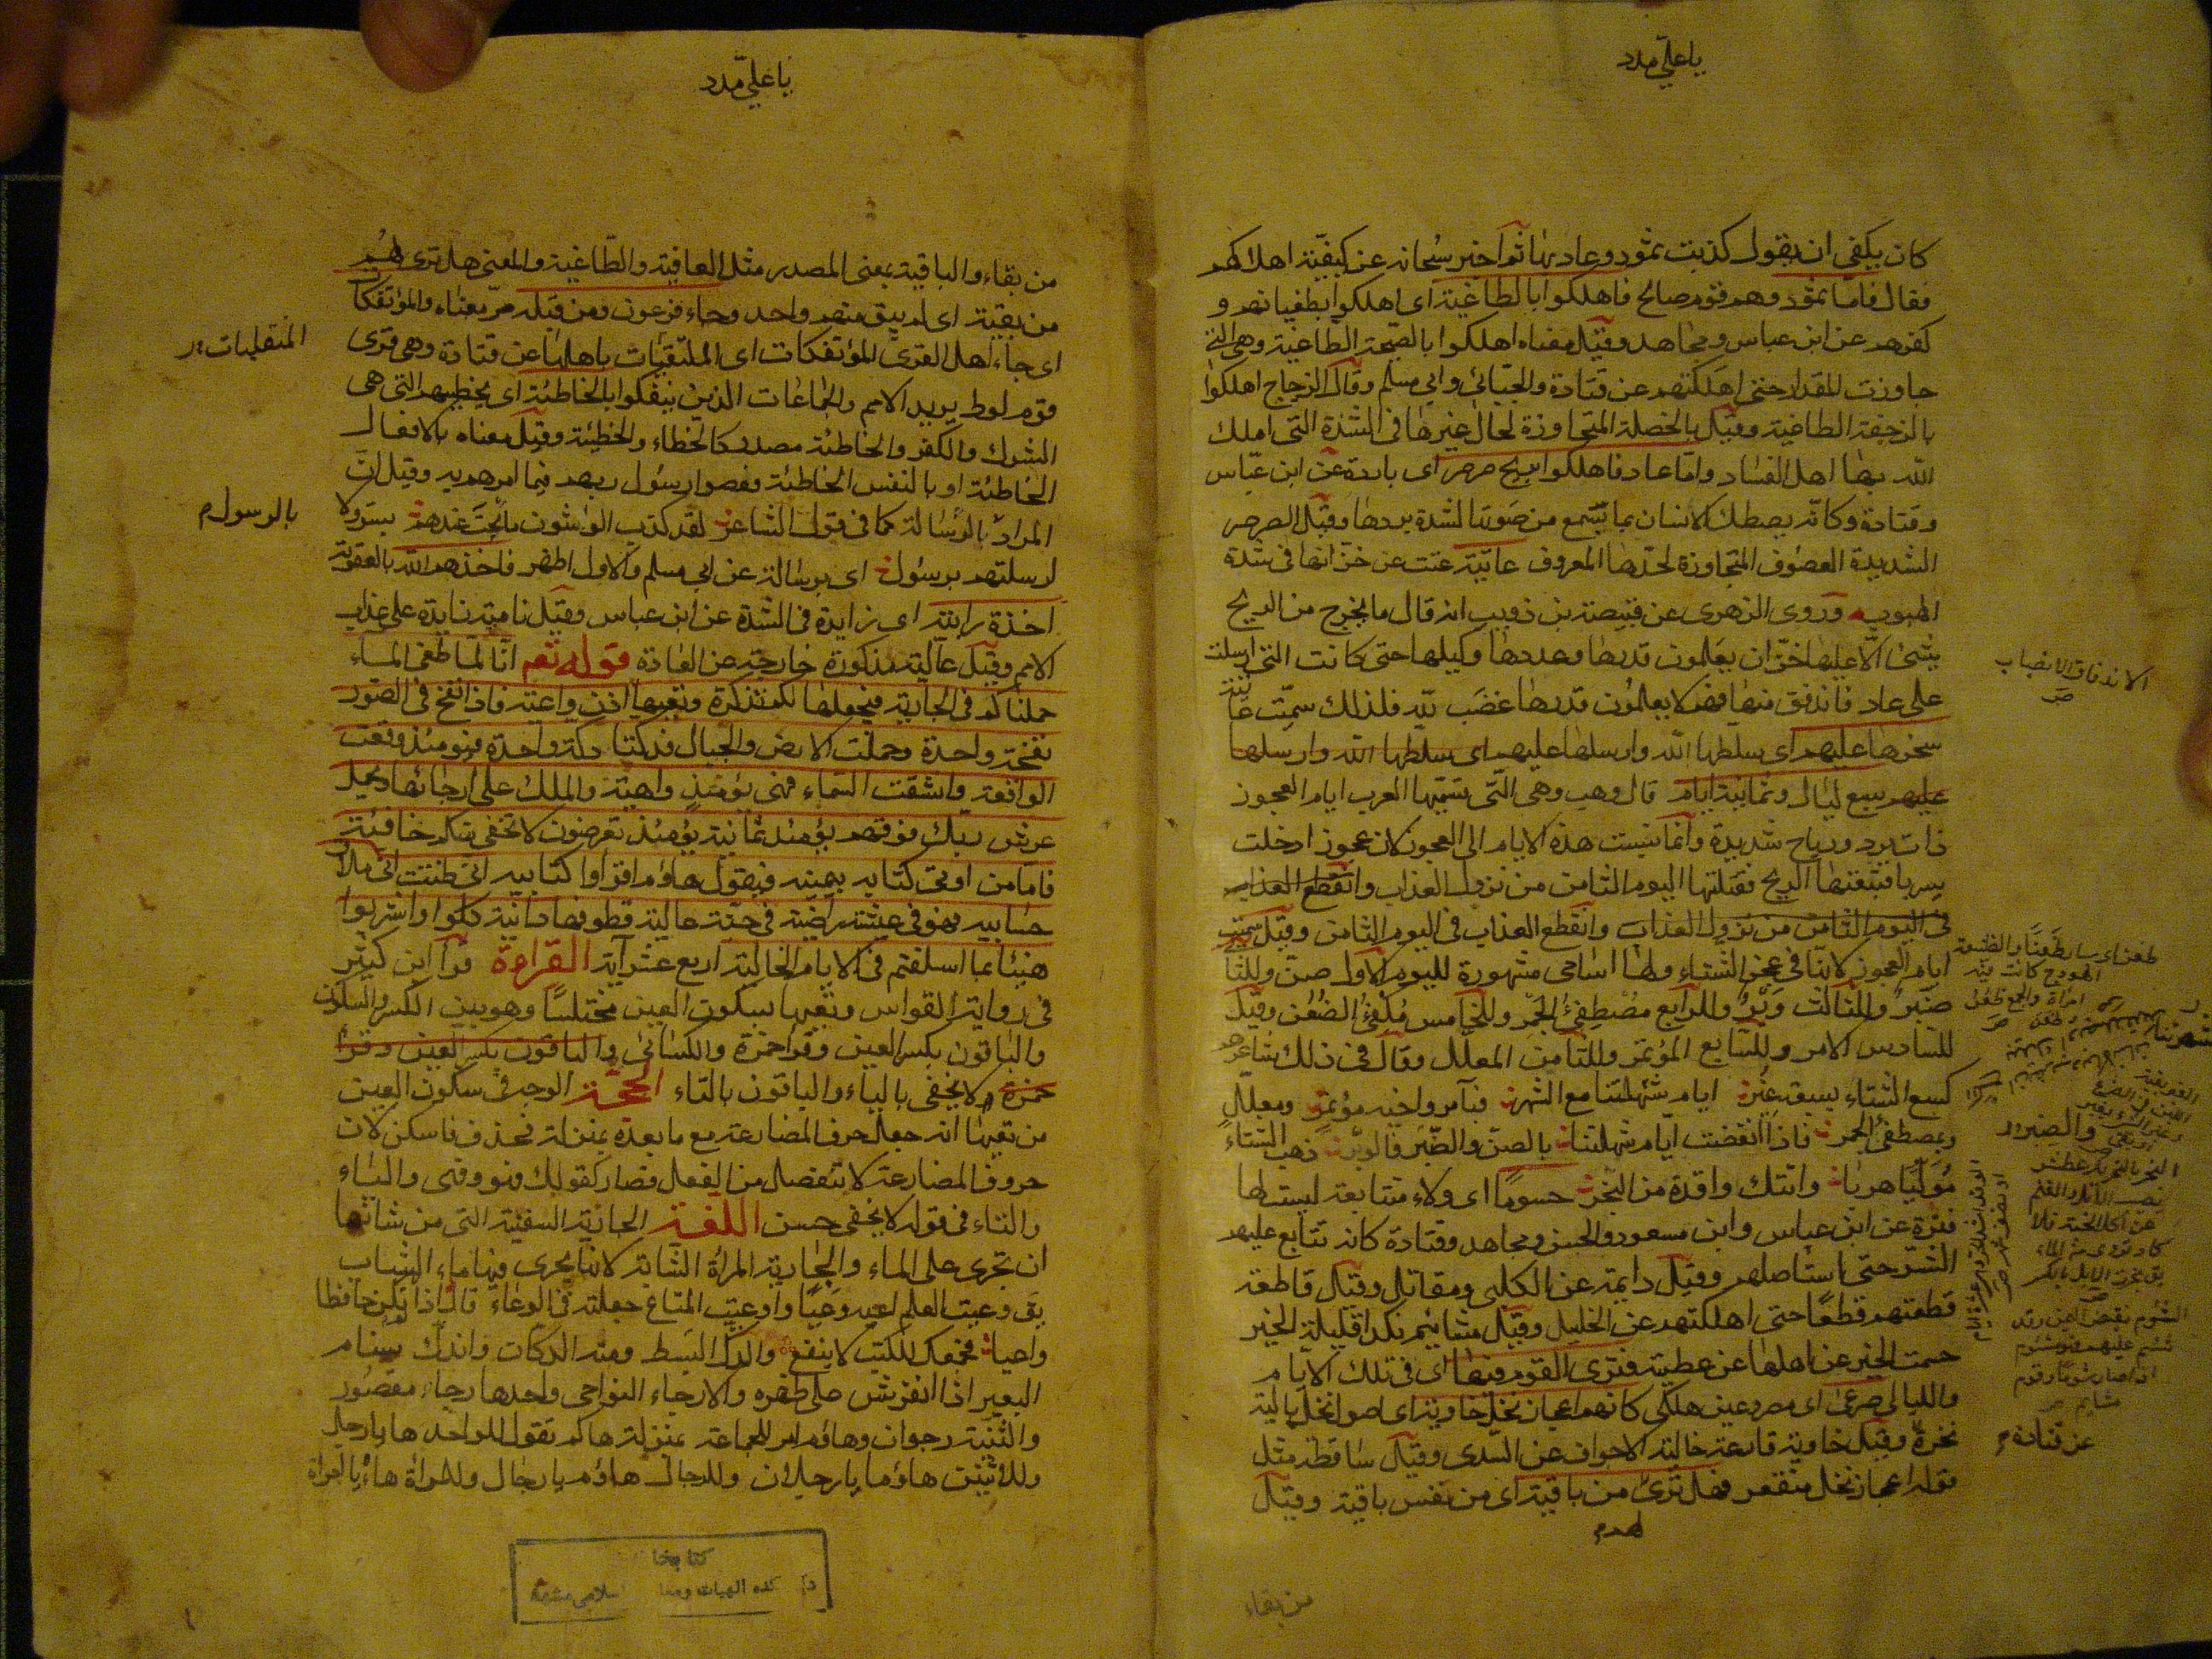 ياعلي مدد
كان يكفي ان يقول كذبت ثمود وعاد بها ثم اخبر سبحانه عن كيفيّة اهلاكهم
فقال فامّا ثمود وهم قوم صالح فاهلكوا بالطاغية اى اهلكوا بطغيانهم و
كفرهم عن ابن عباس ومجاهد وقيل معناه اهلكوا بالصيحة الطاغية وهى التي
جاوزت المقدار حتى اهلكتهم عن قتادة والجبّائي وابي مسلم وقال الزجاج اهلكوا
بالرجفة الطاغية وقيل بالخصلة المتجاوزة لحال غيرها في الشدة التي اهلك
الله بها اهل الفساد وامّا عاد فاهلكوا بريح صرصر اى باردة عن ابن عبّاس
وقتادة وكانّه يصطك الاسنان بما يسمع من صوتها لشدة بردها وقيل الصرصر
الشديدة العصوف المتجاوزة لحدّها المعروف عاتية عتت عن خزّانها في شدة
الهبوب وروى الزهرى عن قبيصة بن ذويب انه قال ما يخرج من الريح
شئ الّا عليها خزّان يعلمون قدرها وعددها وكيلها حتى كانت التي ارسلت
على عاد فاندفق منها فهم لا يعلمون قدرها غضب لله فلذلك سمّيت عاتية
سخرها عليهم اى سلطها الله وارسلها عليهم اى سلطها الله وارسلها
عليهم سبع ليال وثمانية ايام قال وهب وهى التي تسمّيها العرب ايام العجوز
ذات برد ورياح شديدة وانما نسبت هذه الايام الى العجوز لان عجوزا دخلت
سربا فتبعتها الريح فقتلتها اليوم الثامن من نزول العذاب وانقطع العذاب
فى اليوم الثامن من نزول العذاب وانقطع العذاب فى اليوم الثامن وقيل سميت
ايام العجوز لانها في عجز الشتاء ولها اسامى مشهورة لليوم الاول صنّ وللثا
صنّبر وللثالث وبْر وللرابع مصطفئ الجمر وللخامس مكفئ الضعن وقيل
للسادس الامر وللسابع المؤتمر وللثامن المعلل وقال فى ذلك شاعرهم
كسع الشتاء بسبعة غبر ايام شهلتنا مع الشهر فبآمر واخيه مؤتمر ومعلّل
وبمصطفئ الجمر فاذا انقضت ايام شهلتنا بالصنّ والصنّبر والوبر ذهب الشتاء
موليّا هربا واتتك واقدة من النجر حسوما اى ولاء متتابعة ليست لها
فترة عن ابن عباس وابن مسعود والحسن ومجاهد وقتادة كانه تتابع عليهم
الشرّ حتى استاصلهم وقيل دايمة عن الكلبى ومقاتل وقيل قاطعة
قطعتهم قطعا حتى اهلكتهم عن الخليل وقيل مشائيم نكدا قليلة الخير
حسمت الخير عن اهلها عن عطية فترى القوم فيها اى فى تلك الايام
والليالى صرعى اى مصروعين هلكى كانهم اعجاز نخل خاوية اى اصول نخل بالية
نخرة وقيل خاوية فارغة خالية الاجواف عن السّدى وقيل ساقطة مثل
قوله اعجاز نخل منقعر فهل ترى لهم من باقية اى من نفس باقية وقيل
من بقاء
الاندفاق الانصباب
صح
والصنبر
عن قتادة
ياعلي مدد
من بقاء والباقية بمعنى المصدر مثل العافية والطّاغية والمعنى هل ترى لهم
من بقية اى لم يبق منهم واحد وجاء فرعون ومن قبله مرّ معناه والمؤتفكات
اى جاء اهل القرى المؤتفكات اى المنقلبات باهلها عن قتادة وهى قرى
قوم لوط يريد الامم والجماعات الذين ائتفكوا بالخاطئة اى بخطيهم التى هى
الشرك والكفر والخاطئة مصدر كالخطاء والخطيئة وقيل معناه بالافعال
الخاطئة او بالنفس الخاطئة فعصوا رسول ربهم فيما امرهم به وقيل انّ
المراد بالرسالة كما فى قول الشاعر لقد كذب الواشون ما بحت عندهم بسرّ ولا
ارسلتهم برسول اى برسالة عن ابى مسلم والاول اظهر فاخذهم الله بالعقوبة
اخذة رابية اى زايدة فى الشدة عن ابن عباس وقيل نامية زايدة على عذاب
الامم وقيل عالية مذكورة خارجة عن العادة قوله تعم انّا لمّا طغى الماء
حملناكم فى الجارية لنجعلها لكم تذكرة وتعيها اذن واعية فاذا نفخ فى الصّور
نفخة واحدة وحملت الارض والجبال فدكّتا دكة واحدة فيومئذ وقعت
الواقعة وانشقت السّماء فهى يومئذ واهية والملك على ارجائها ويحمل
عرش ربّك فوقهم يومئذ ثمانية يومئذ تعرضون لا تخفى منكم خافية
فامّا من اوتى كتابه بيمينه فيقول هاؤم اقراوا كتابيه انى ظننت انى ملاق
حسابيه فهو فى عيشة راضية فى جنّة عالية قطوفها دانية كلوا واشربوا
هنيئا بما اسلفتم فى الايام الخالية اربع عشر آية القراءة قرأ ابن كثير
فى رواية القواس وتعيها بسكون العين مختلسا وهو بين الكسر والسكون
والباقون بكسر العين وقرأ حمزة والكسائى والباقون بكسر العين وقرأ
حمزة لا يخفى بالياء والباقون بالتاء الحجّة الوجه فى سكون العين
من تعيها انه جعل حرف المضارعة مع ما بعده بمنزلة فخذ فاسكن لان
حروف المضارعة لا تنفصل من الفعل فصار كقولك وهو وهى والياء
والتاء فى قوله لا يخفى حسن اللّغة الجارية السفينة التى من شانها
ان تجرى على الماء والجارية المرأة الشابة لانها يجرى فيها ماء الشباب
يق وعيت العلم اعيه وعيا واوعيت المتاع جعلته فى الوعاء قال اذا لم تكن حافظا
واعيا فجمعك للكتب لا ينفع والدكّ البسط ومنه الدكات واندكّ سنام
البعير اذا انفرش على ظهره والارجاء النواحى واحدها رجاء مقصور
والتثنية رجوان وهاؤم امر للجماعة بمنزلة هاكم تقول للواحد هاء يا رجل
وللاثنين هاؤما يا رجلان وللرجال هاؤم يا رجال وللمرأة هاء يا امراة
المنقلبات
بالرسول
كتابخا
كده الهيات ومعا
اسلامى مشهد